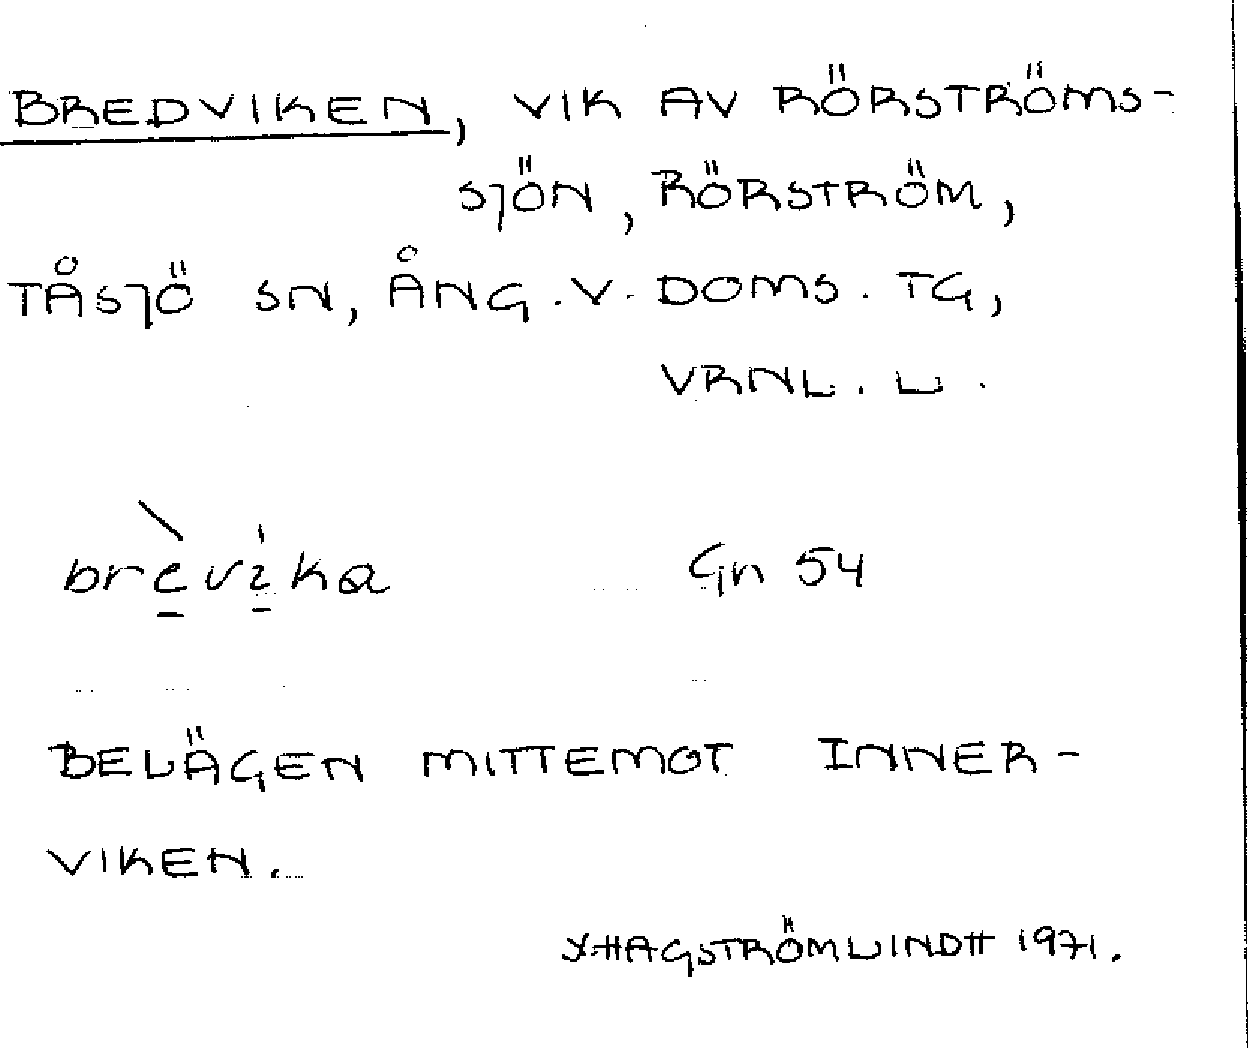 BREDVIKEN, VIK AV RÖRSTRÖMS-
SJÖN, RÖRSTRÖM,
TÅSJÖ SN, ÅNG. V. DOMS. TG,
VRNL. L.
brèvika Gn 54
BELÄGEN MITTEMOT INNER-
VIKEN.
Y. HAGSTRÖM LINDH 1971.